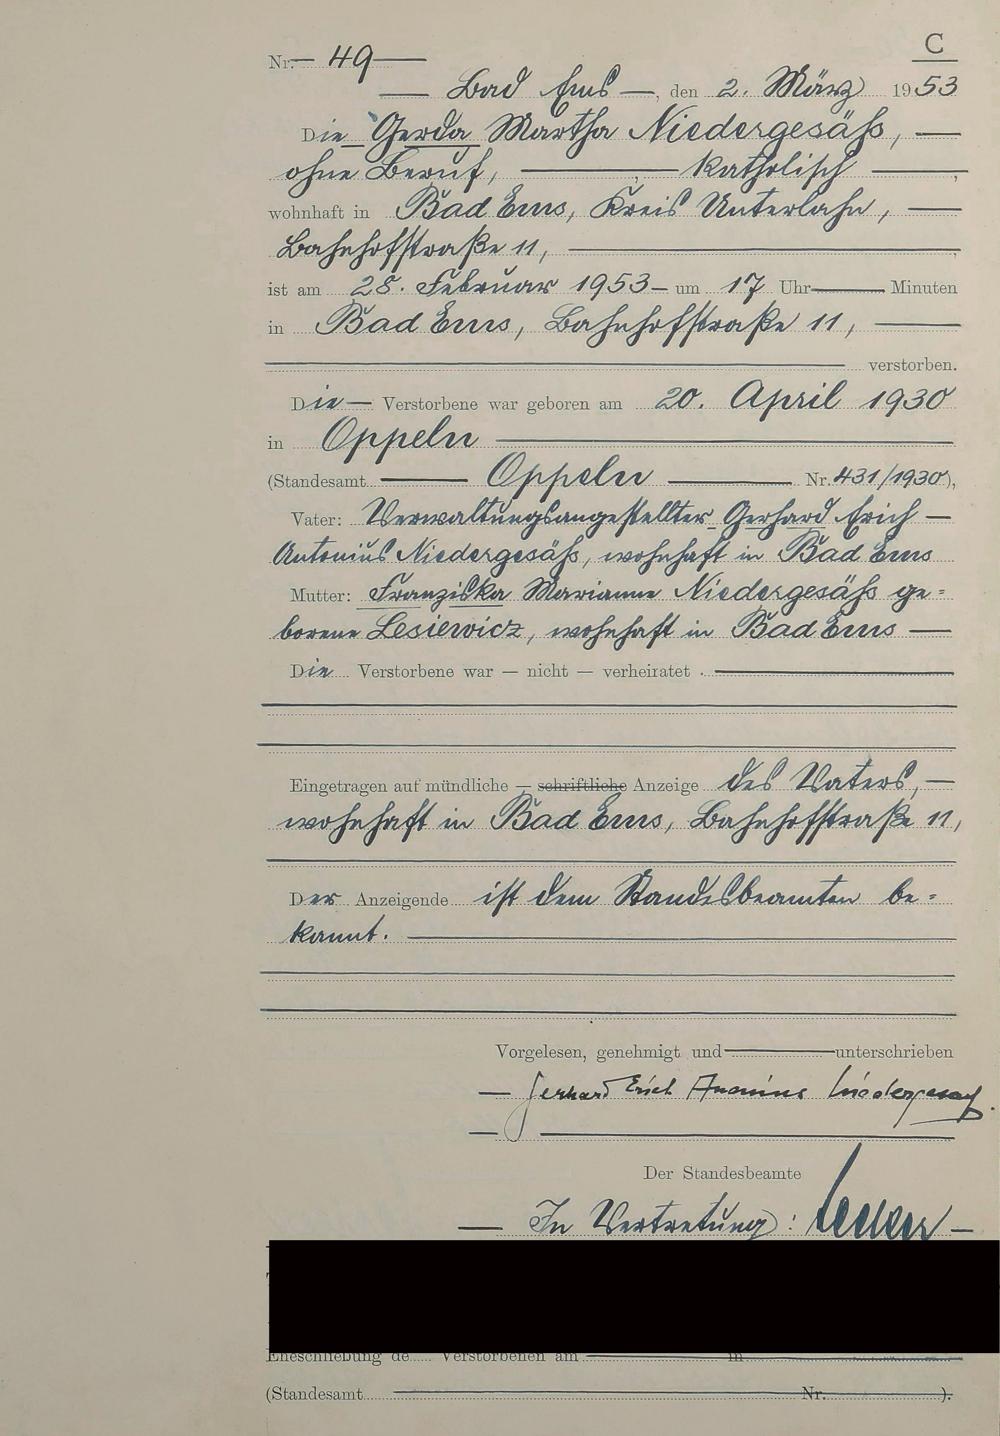 C
Nr. 49
Bad Ems, den 2. März 1953
Die Gerda Martha Niedergesäß,
ohne Beruf, katholisch,
wohnhaft in Bad Ems, Kreis Unterlahn,
Bahnhofstraße 11,
ist am 28. Februar 1953 um 17 Uhr Minuten
in Bad Ems, Bahnhofstraße 11,
verstorben.
Die Verstorbene war geboren am 20. April 1930
in Oppeln
(Standesamt Oppeln Nr. 431/1930),
Vater: Verwaltungsangestellter Gerhard Erich
Antonius Niedergesäß, wohnhaft in Bad Ems
Mutter: Franziska Marianne Niedergesäß ge=
borene Lesiewicz, wohnhaft in Bad Ems
Die Verstorbene war — nicht — verheiratet.
Eingetragen auf mündliche — schriftliche Anzeige des Vaters,
wohnhaft in Bad Ems, Bahnhofstraße 11,
Der Anzeigende ist dem Standesbeamten be=
kannt.
Vorgelesen, genehmigt und unterschrieben
Gerhard Erich Niedergesäß.
Der Standesbeamte
In Vertretung:
Eheschließung de Verstorbenen am in
(Standesamt Nr. ).